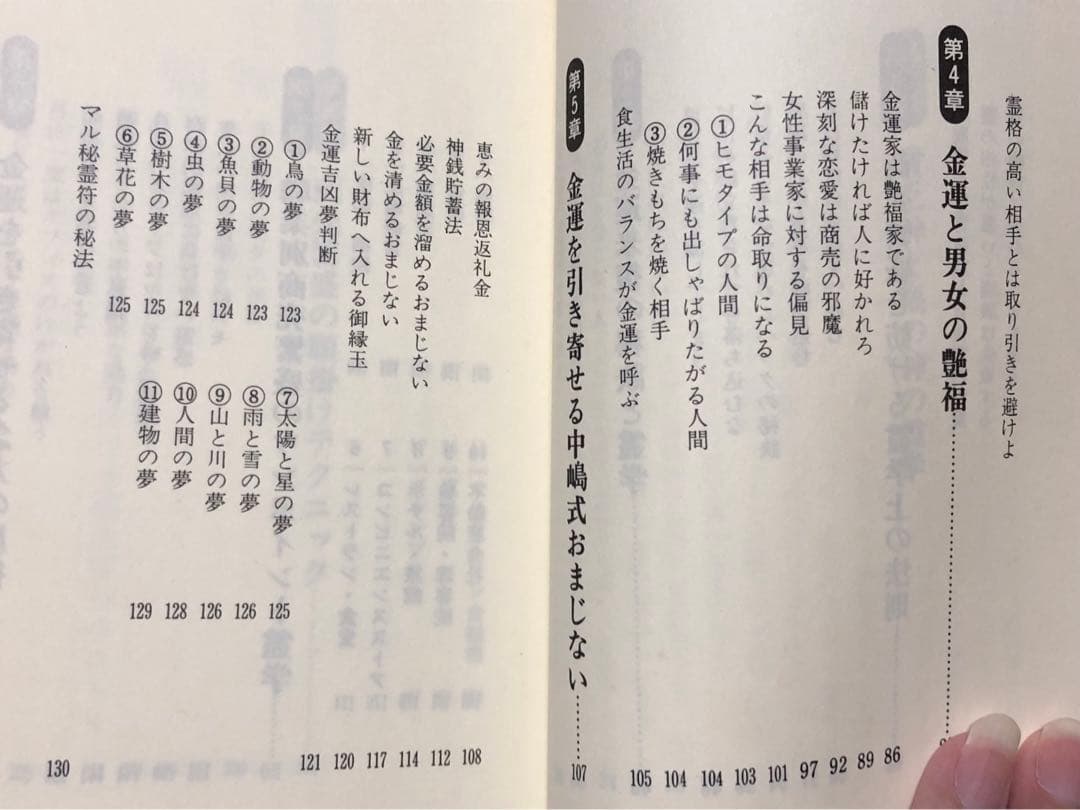 霊格の高い相手とは取り引きを避けよ
第4章 金運と男女の艶福
金運家は艶福家である 86
儲けたければ人に好かれろ 89
深刻な恋愛は商売の邪魔 92
女性事業家に対する偏見 97
こんな相手は命取りになる 101
①ヒモタイプの人間 103
②何事にも出しゃばりたがる人間 104
③焼きもちを焼く相手 104
食生活のバランスが金運を呼ぶ 105
第5章 金運を引き寄せる中嶋式おまじない 107
恵みの報恩返礼金 108
神銭貯蓄法 112
必要金額を溜めるおまじない 114
金を清めるおまじない 117
新しい財布へ入れる御縁玉 120
金運吉凶夢判断 121
①鳥の夢 123
②動物の夢 123
③魚貝の夢 124
④虫の夢 124
⑤樹木の夢 125
⑥草花の夢 125
⑦太陽と星の夢 125
⑧雨と雪の夢 126
⑨山と川の夢 126
⑩人間の夢 128
⑪建物の夢 129
マル秘霊符の秘法 130